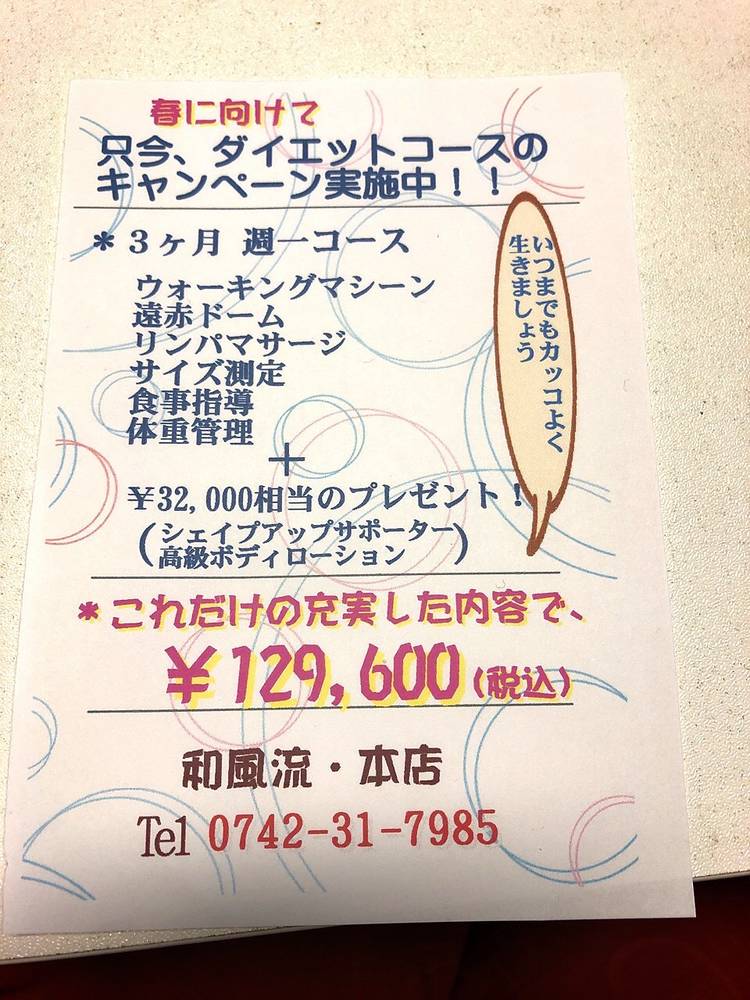 春に向けて
只今、ダイエットコースの
キャンペーン実施中！！
＊３ヶ月 週一コース
ウォーキングマシーン
遠赤ドーム
リンパマサージ
サイズ測定
食事指導
体重管理
＋
￥32,000相当のプレゼント！
(シェイプアップサポーター
高級ボディローション)
いつまでもカッコよく
生きましょう
＊これだけの充実した内容で、
￥129,600(税込)
和風流・本店
Tel 0742-31-7985